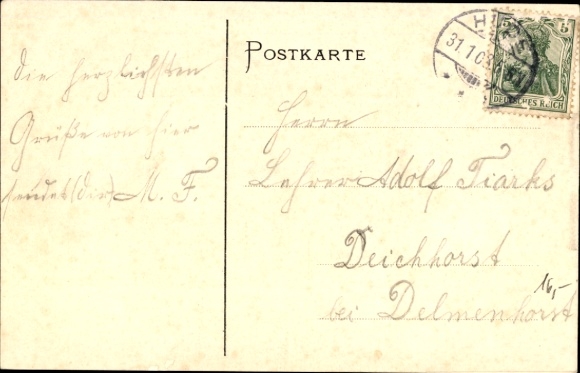 die herzlichsten
Grüße von hier
sendet (dir) M. F.
POSTKARTE
31.1.0
5 5
DEUTSCHES REICH
Herrn
Lehrer Adolf Tiarks
Deichhorst
bei Delmenhorst
16,-